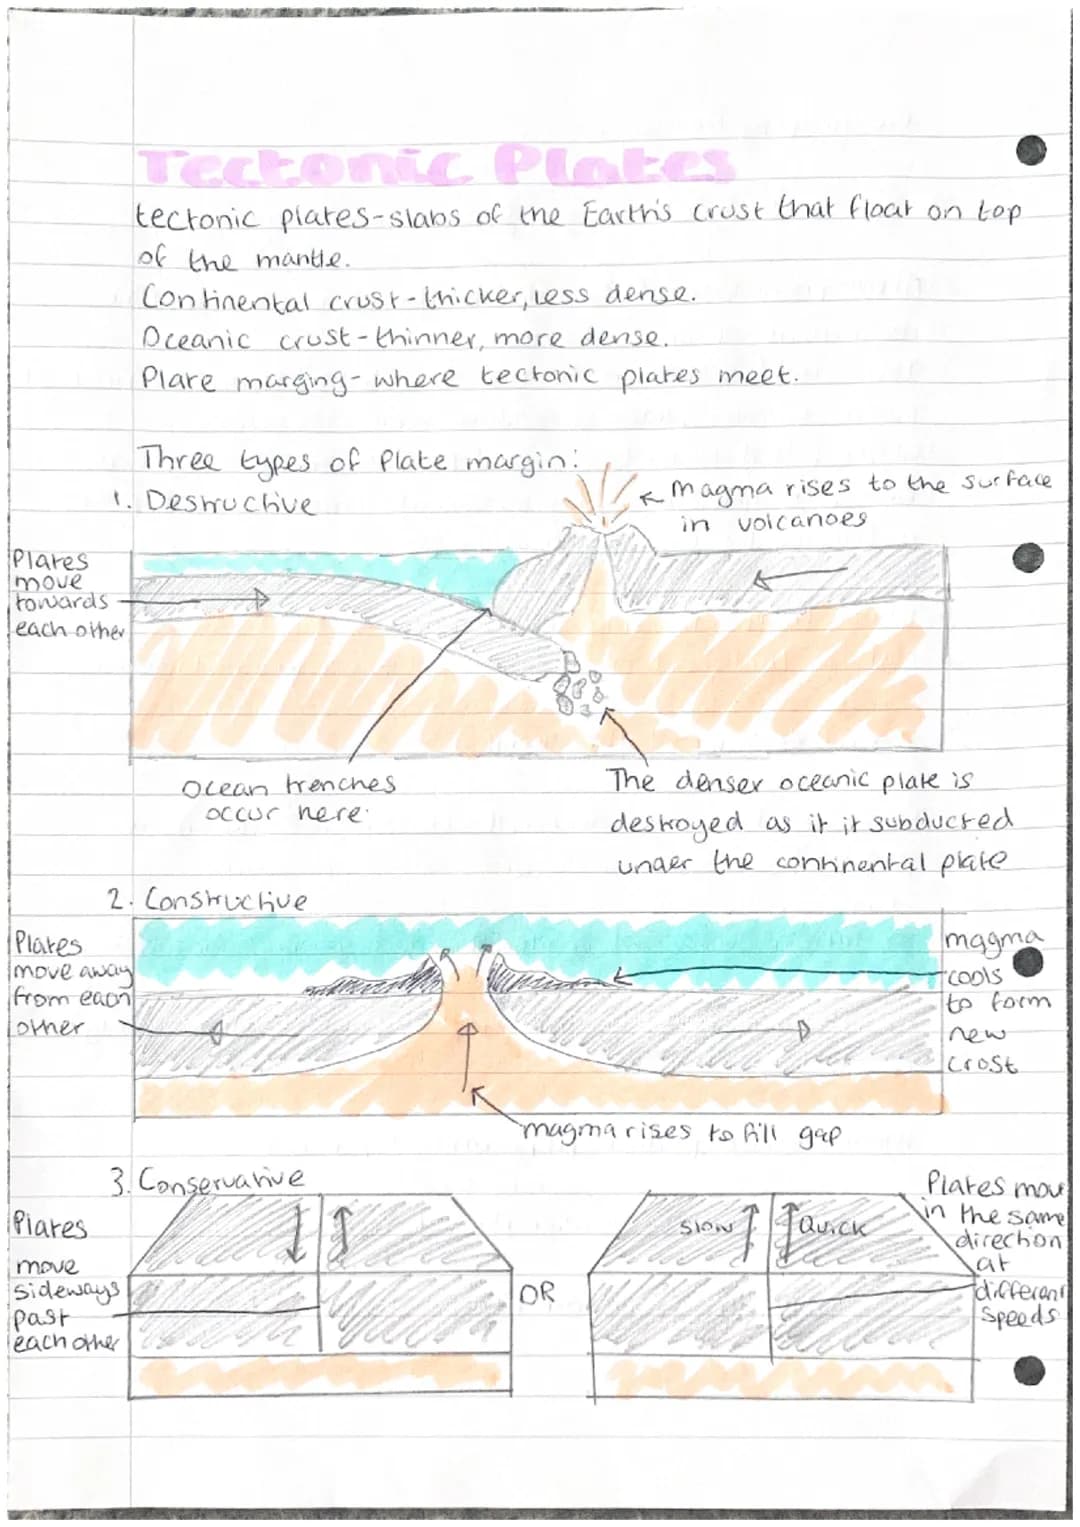 Tectonic Plates
tectonic plates-slabs of the Earth's crust that float on top
of the mantle.
Continental crust-thicker, less dense.
Oceanic crust-thinner, more dense.
Plate marging-where tectonic plates meet.
Three types of Plate margin:
1. Destructive
magma rises to the surface
in volcanoes
Plates
move
towards
each other
Ocean trenches
occur here.
The denser oceanic plate is
destroyed as it it subducted
under the continental plate
2. Constructive
Plates
move away
from each
other
magma
cools
to form
new
crost
magma rises to fill gap
3. Conservative
Plates
move
sideways
past
each other
OR
Slow
Quick
Plates move
in the same
direction
at
different
speeds